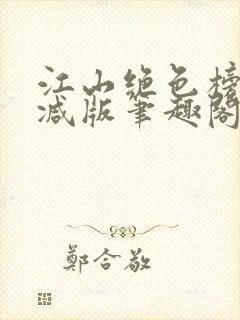 江山绝色榜
减版笔趣阁
郑合敬